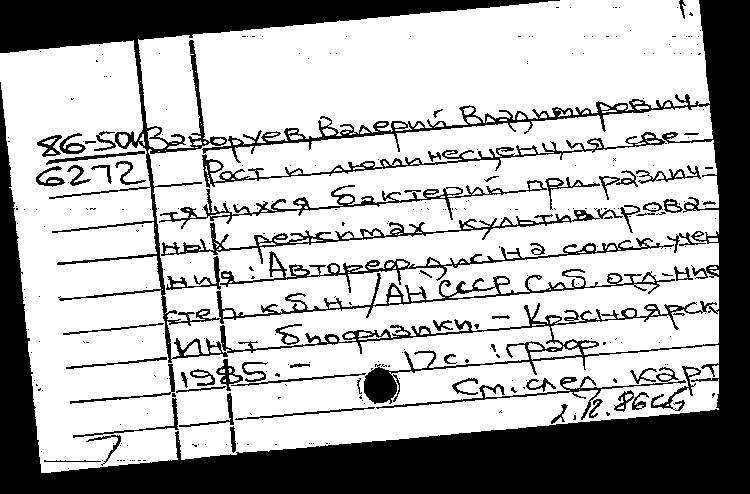 1.
86-50к Заворуев, Валерий Владимирович.
6272 Рост и люминесценция све-
тящихся бактерий при различ-
ных режимах культивирова-
ния: Автореф. дис. на соиск. учен
степ. к.б.н. / АН СССР. Сиб. отд-ние
Ин-т биофизики. - Красноярск
1985. - 17с. : граф.
См. след. карт
2.12.86